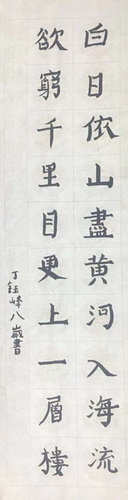 白日依山盡黄河入海流
欲窮千里目更上一層樓
丁鈺峰八歲書